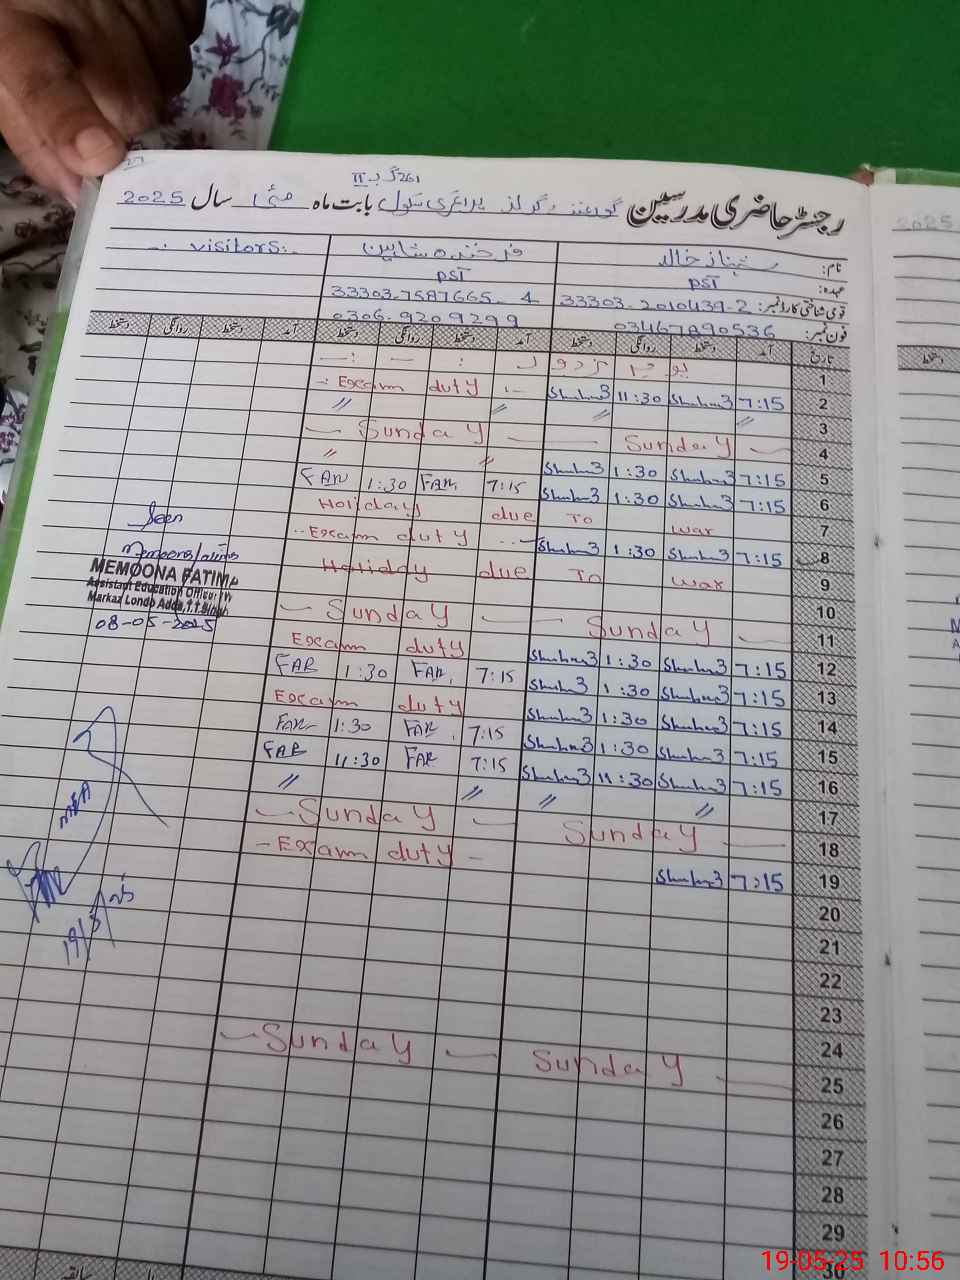 261 گ ب II
رجسٹر حاضری مدرسین گورنمنٹ گرلز پرائمری سکول بابت ماہ مئی سال 2025
نام: شہناز خالد فرخندہ شاہین visitors:-
عہدہ: PST PST
قومی شناختی کارڈ نمبر: 33303-2010439-2 33303-7587665-4
فون نمبر: 03467890536 0306-9209299
تاریخ آمد دستخط روانگی دستخط آمد دستخط روانگی دستخط آمد دستخط روانگی دستخط
1 یوم مزدور
2 7:15 11:30 Exam duty
3 〃 〃 〃 〃
4 Sunday Sunday
5 7:15 1:30 〃 〃
6 7:15 1:30 7:15 FAR 1:30 FAR
7 Holiday due To war
8 7:15 1:30 Exam duty
9 Holiday due To war
10
11 Sunday Sunday
12 7:15 1:30 Exam duty
13 7:15 1:30 7:15 FAR 1:30 FAR
14 7:15 1:30 Exam duty
15 7:15 1:30 7:15 FAR 1:30 FAR
16 7:15 11:30 7:15 FAR 11:30 FAR
17 〃 〃 〃 〃
18 Sunday Sunday
19 7:15 Exam duty
20
21
22
23
24
25 Sunday Sunday
26
27
28
29
30
Seen
MEMOONA FATIMA
Assistant Education Officer (W)
Markaz Londo Adda, T.T.Singh
08-05-2025
MEA
19/5/25
2025
دستخط
19-05-25 10:56